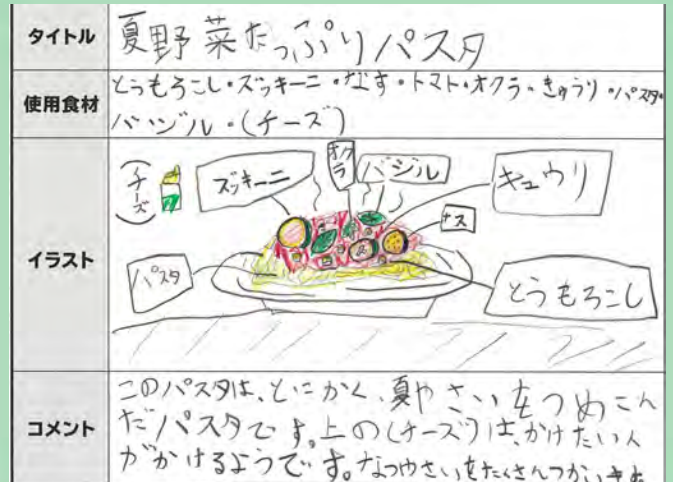 タイトル
夏野菜たっぷりパスタ
使用食材
とうもろこし・ズッキーニ・なす・トマト・オクラ・きゅうり・パスタ・
バジル・(チーズ)
イラスト
(チーズ)
ズッキーニ
オクラ
バジル
キュウリ
ナス
パスタ
とうもろこし
コメント
このパスタは、とにかく、夏やさいをつめこん
だパスタです。上の(チーズ)は、かけたい人
がかけるようです。なつやさいをたくさんつかいました